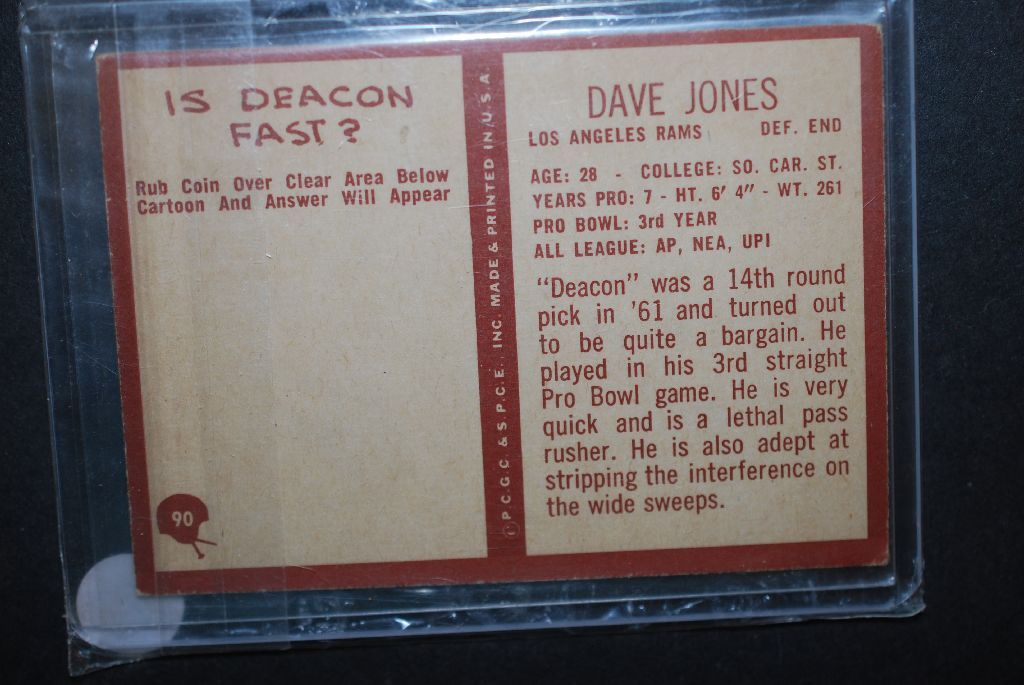 IS DEACON
FAST?
Rub Coin Over Clear Area Below
Cartoon And Answer Will Appear
90
© P.C.G.C. & S.P.C.E., INC. MADE & PRINTED IN U.S.A.
DAVE JONES
LOS ANGELES RAMS DEF. END
AGE: 28 - COLLEGE: SO. CAR. ST.
YEARS PRO: 7 - HT. 6' 4" - WT. 261
PRO BOWL: 3rd YEAR
ALL LEAGUE: AP, NEA, UPI
"Deacon" was a 14th round
pick in '61 and turned out
to be quite a bargain. He
played in his 3rd straight
Pro Bowl game. He is very
quick and is a lethal pass
rusher. He is also adept at
stripping the interference on
the wide sweeps.